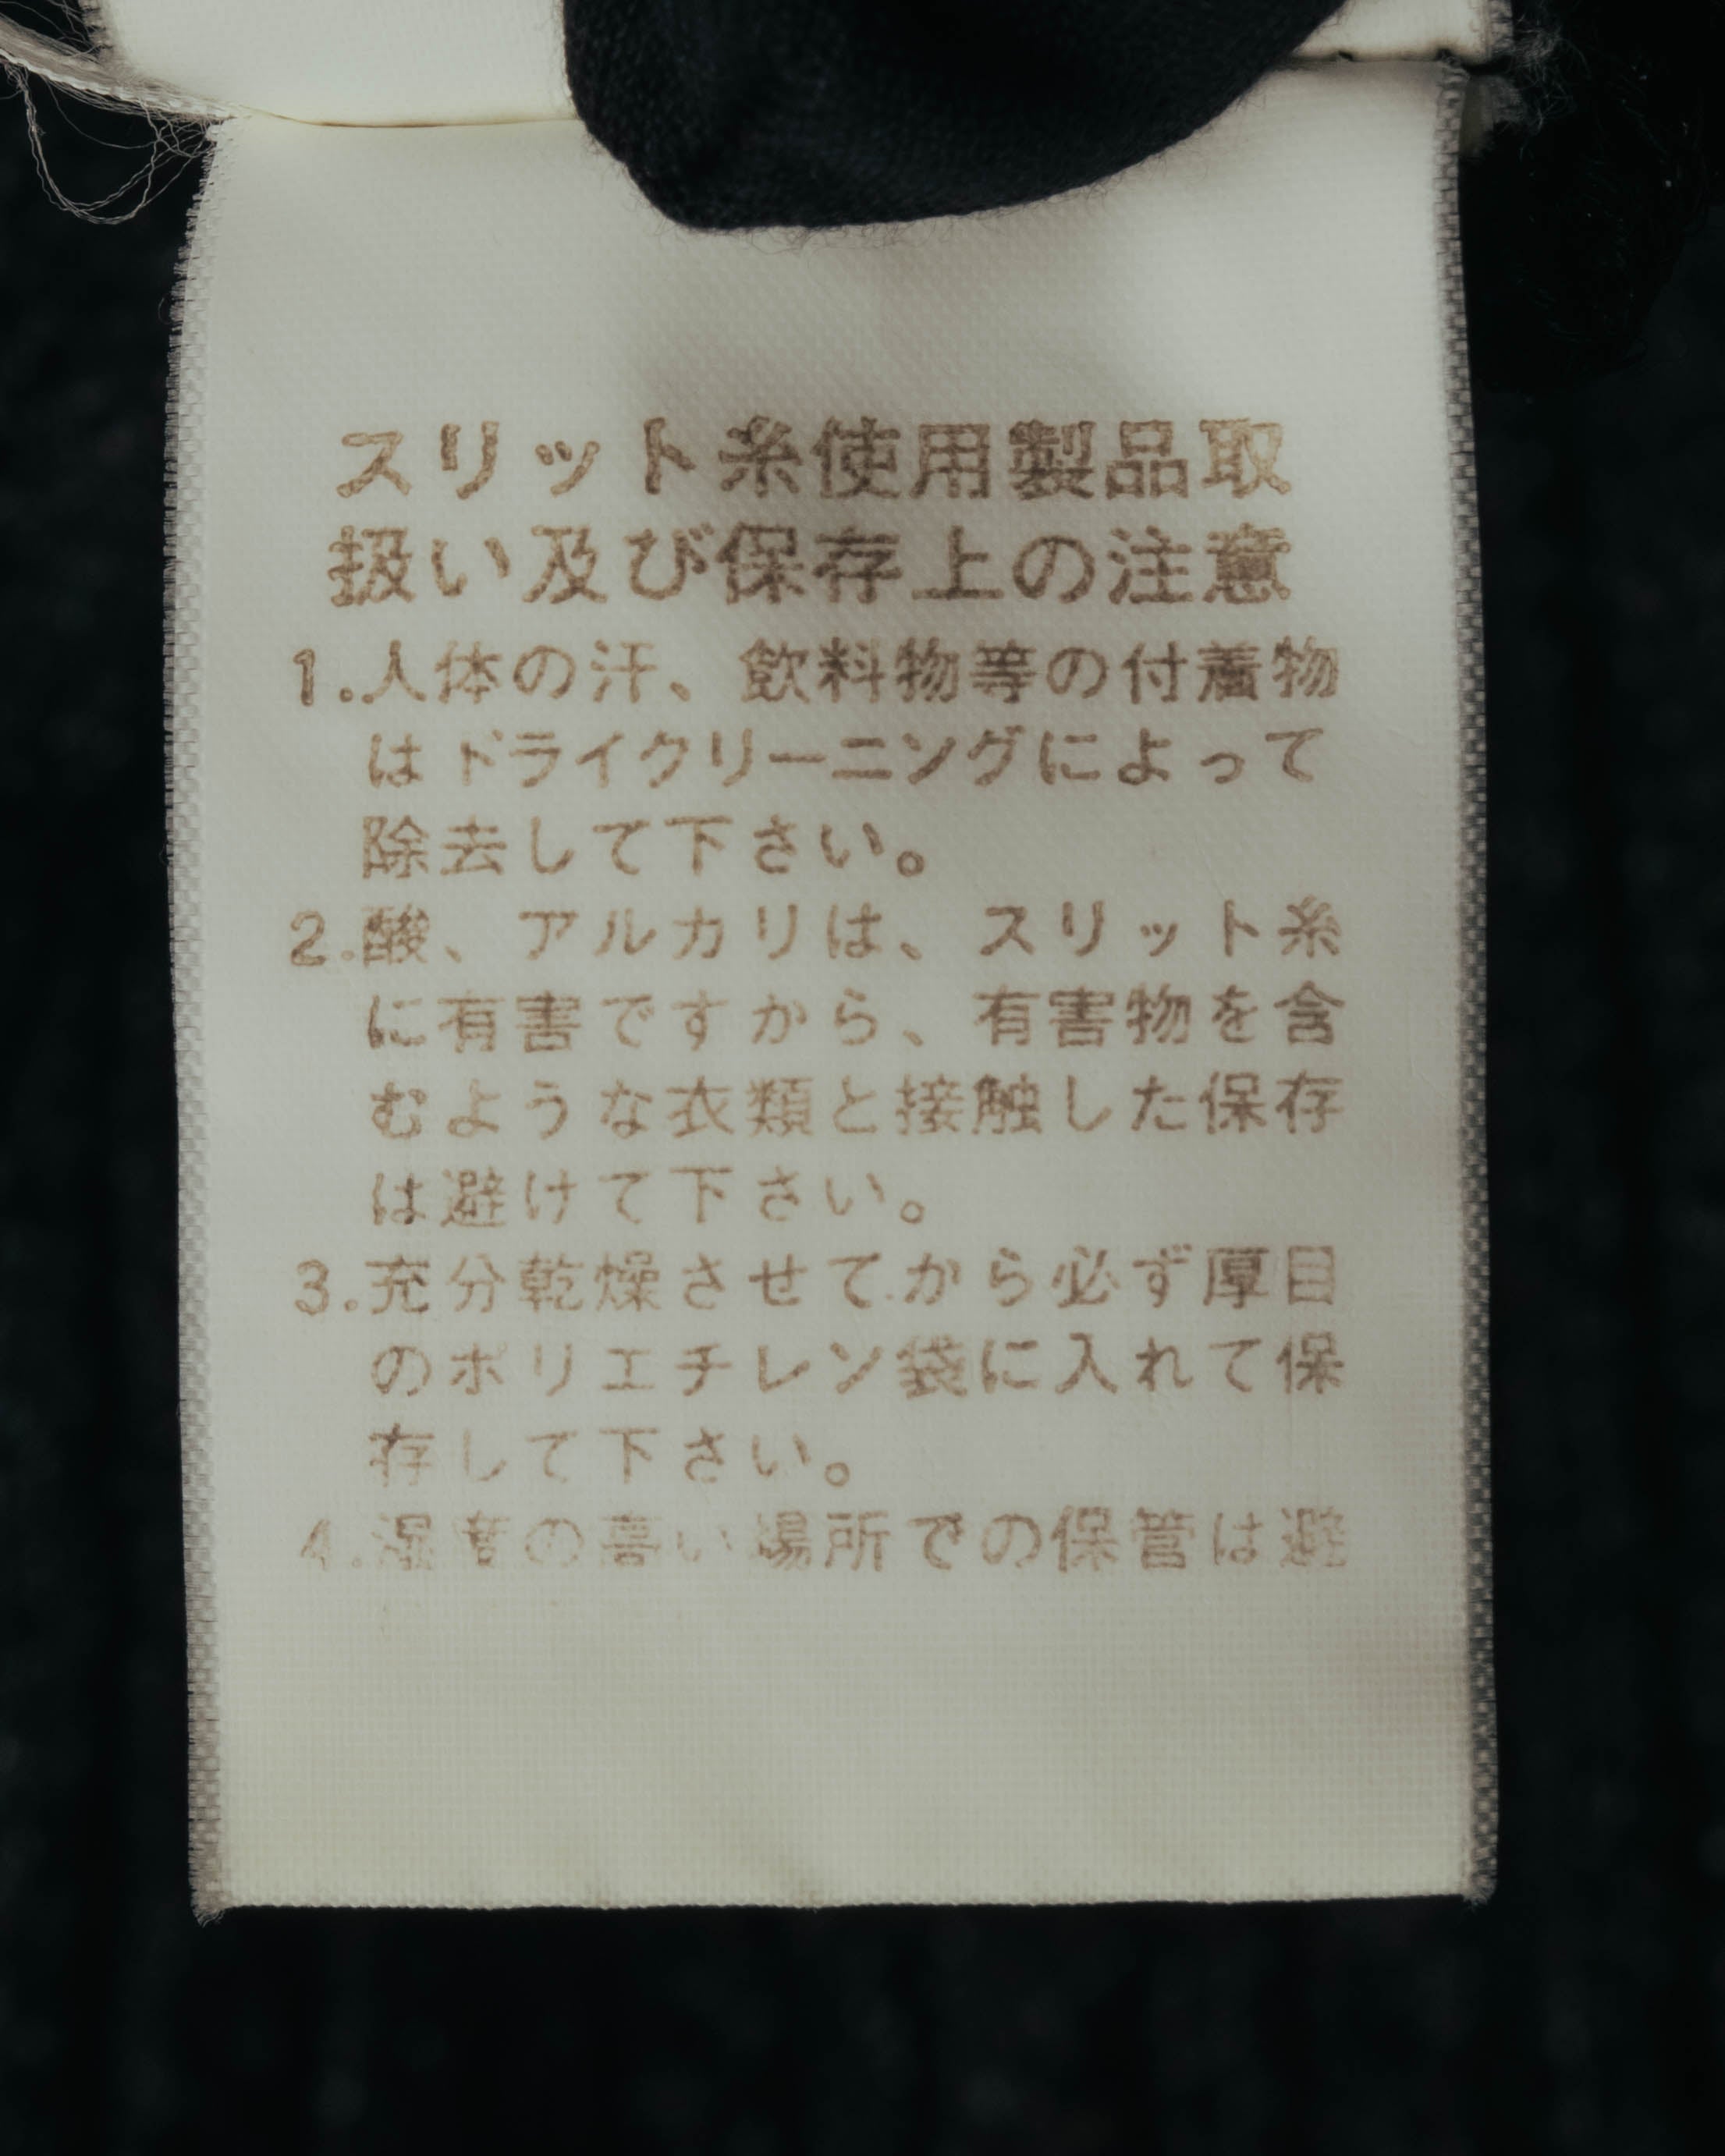 スリット糸使用製品取
扱い及び保存上の注意
1.人体の汗、飲料物等の付着物
はドライクリーニングによって
除去して下さい。
2.酸、アルカリは、スリット糸
に有害ですから、有害物を含
むような衣類と接触した保存
は避けて下さい。
3.充分乾燥させてから必ず厚目
のポリエチレン袋に入れて保
存して下さい。
4.湿度の高い場所での保管は避